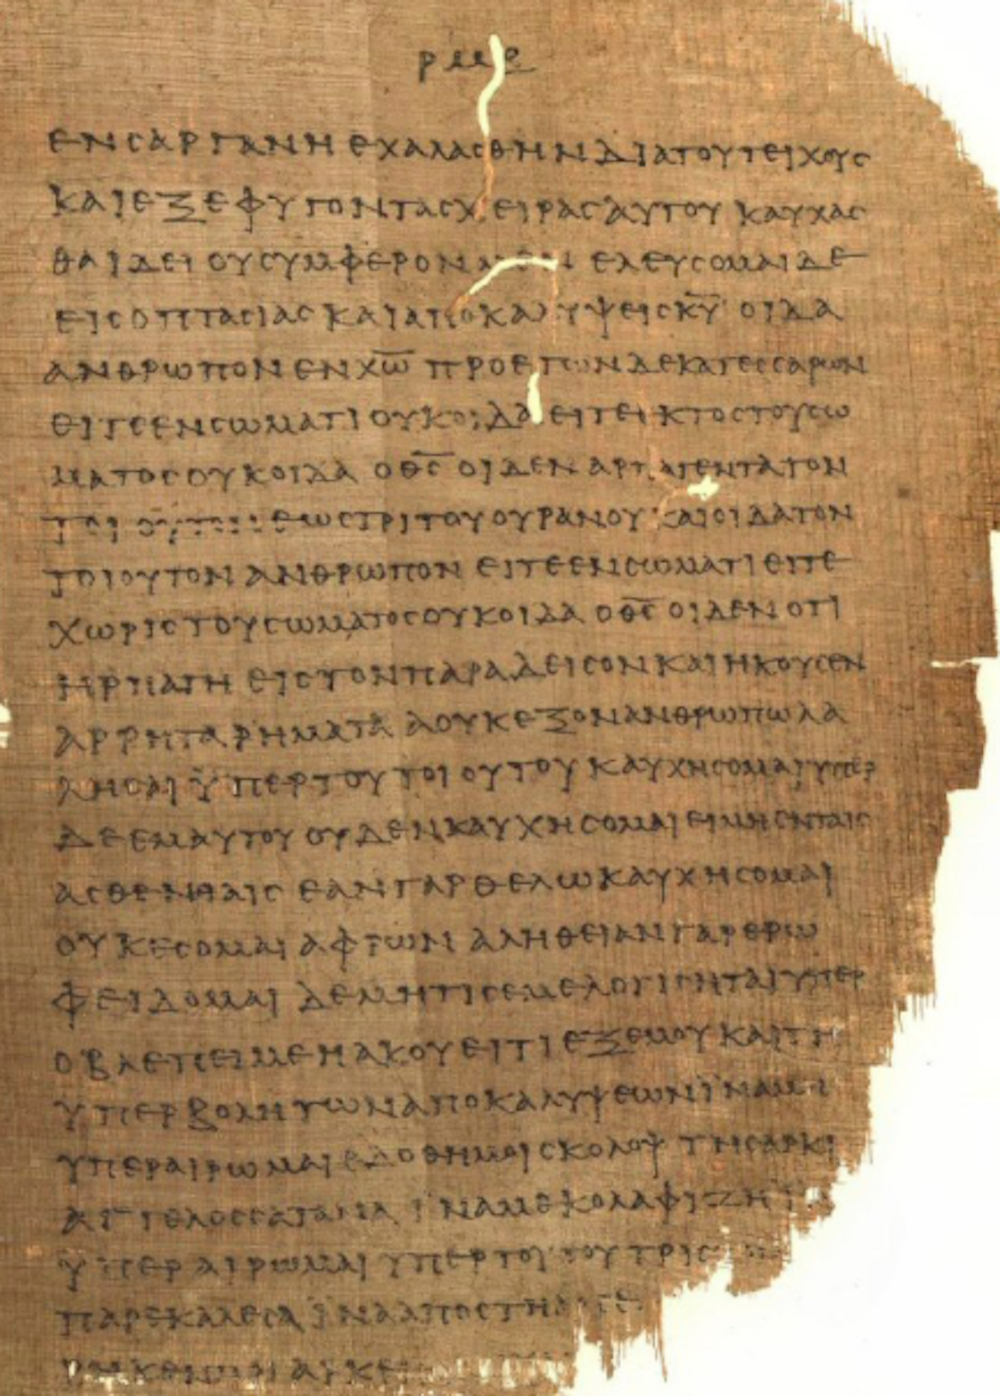 ρμε
ενσαργανηεχαλασθηνδιατουτειχους
καιεξεφυγοντασχειρασαυτου καυχας
θαιδει ουσυμφερονμεν ελευσομαιδε
εισοπτασιαςκαιαποκαλυψεισκ̅υ̅ οιδα
ανθρωπονενχ̅ω̅ προετωνδεκατεσσαρων
ειτεενσωματιουκοιδα ειτεεκτοστουσω
ματοσουκοιδα οθ̅ς̅ οιδεν αρπαγεντατον
τοιουτον εωστριτουουρανου καιοιδατον
τοιουτονανθρωπον ειτεενσωματιειτε
χωριστουσωματοσουκοιδα οθ̅ς̅ οιδενοτι
ηρπαγη εισ τονπαραδεισονκαιηκουσεν
αρρηταρηματα αουκεξονανθρωπωλα
λησαι ϋπερτουτοιουτου καυχησομαιυπερ
δεεμαυτου ουδενκαυχησομαιειμηενταις
ασθενειαις εανγαρθελωκαυχησομαι
ουκεσομαι αφρων αληθειανγαρερω
φειδομαι δεμητισεμελογισηταιυπερ
οβλεπειμεηακουειτιεξεμουκαιτη
υπερβολητωναποκαλυψεωνϊναμη
υπεραιρωμαιεδοθημοισκολοψ τησαρκι
αγγελοσσατανα ιναμεκολαφιζηι
υπεραιρωμαι υπερτουτουτρις
παρεκαλεσα ινααποστη